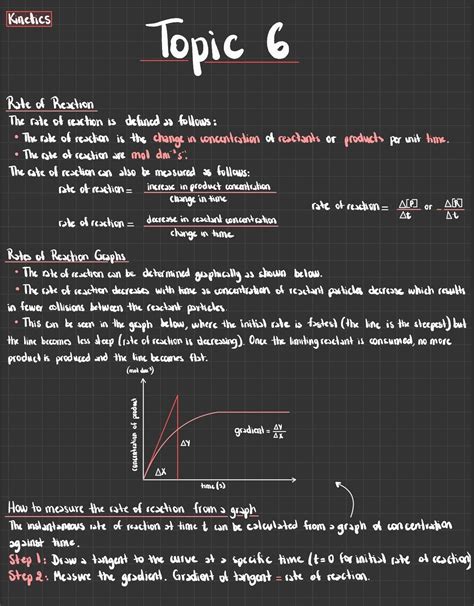 Kinetics
Topic 6
Rate of Reaction
The rate of reaction is defined as follows:
• The rate of reaction is the change in concentration of reactants or products per unit time.
• The rate of reaction are mol dm⁻³ s⁻¹.
The rate of reaction can also be measured as follows:
rate of reaction = increase in product concentration / change in time
rate of reaction = Δ[P]/Δt or -Δ[R]/Δt
rate of reaction = decrease in reactant concentration / change in time
Rates of Reaction Graphs
• The rate of reaction can be determined graphically as shown below.
• The rate of reaction decreases with time as concentration of reactant particles decrease which results
in fewer collisions between the reactant particles.
• This can be seen in the graph below, where the initial rate is fastest (the line is the steepest) but
the line becomes less steep (rate of reaction is decreasing). Once the limiting reactant is consumed, no more
product is produced and the line becomes flat.
(mol dm⁻³)
concentration of product
ΔY
ΔX
gradient = ΔY/ΔX
time (s)
How to measure the rate of reaction from a graph
The instantaneous rate of reaction at time t can be calculated from a graph of concentration
against time.
Step 1: Draw a tangent to the curve at a specific time (t=0 for initial rate of reaction)
Step 2: Measure the gradient. Gradient of tangent = rate of reaction.